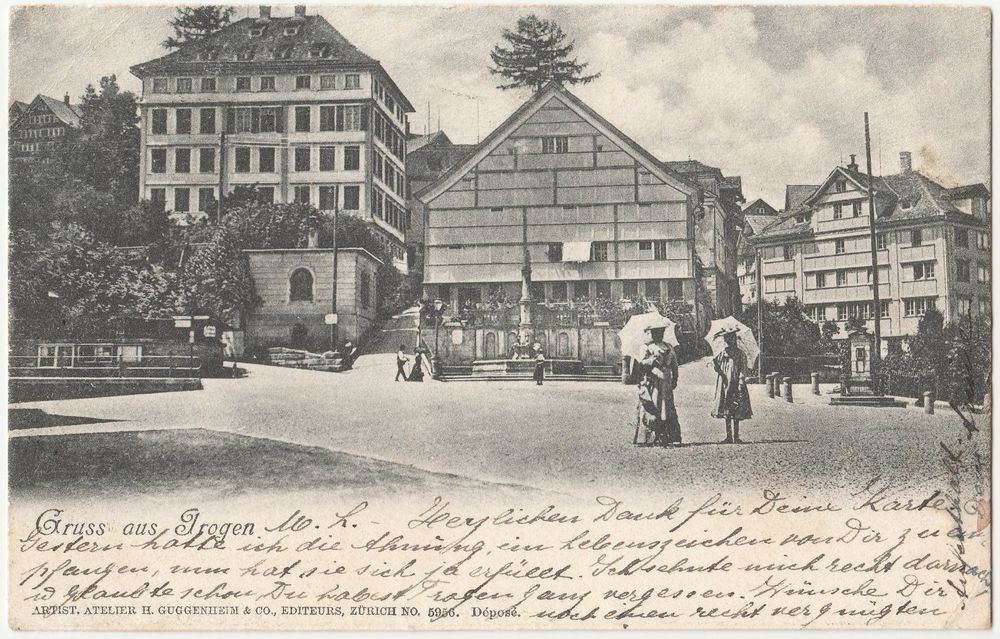 Gruss aus Trogen
M. L. - Herzlichen Dank für Deine Karte
Gestern hatte ich die Ahnung, ein Lebenszeichen von Dir zu em
pfangen, nun hat sie sich ja erfüllt. Ich sehnte mich recht darnach
u glaubte schon, Du habest Trogen ganz vergessen. Wünsche Dir
ARTIST. ATELIER H. GUGGENHEIM & CO., EDITEURS, ZÜRICH NO. 5956. Déposé.
noch einen recht vergnügten